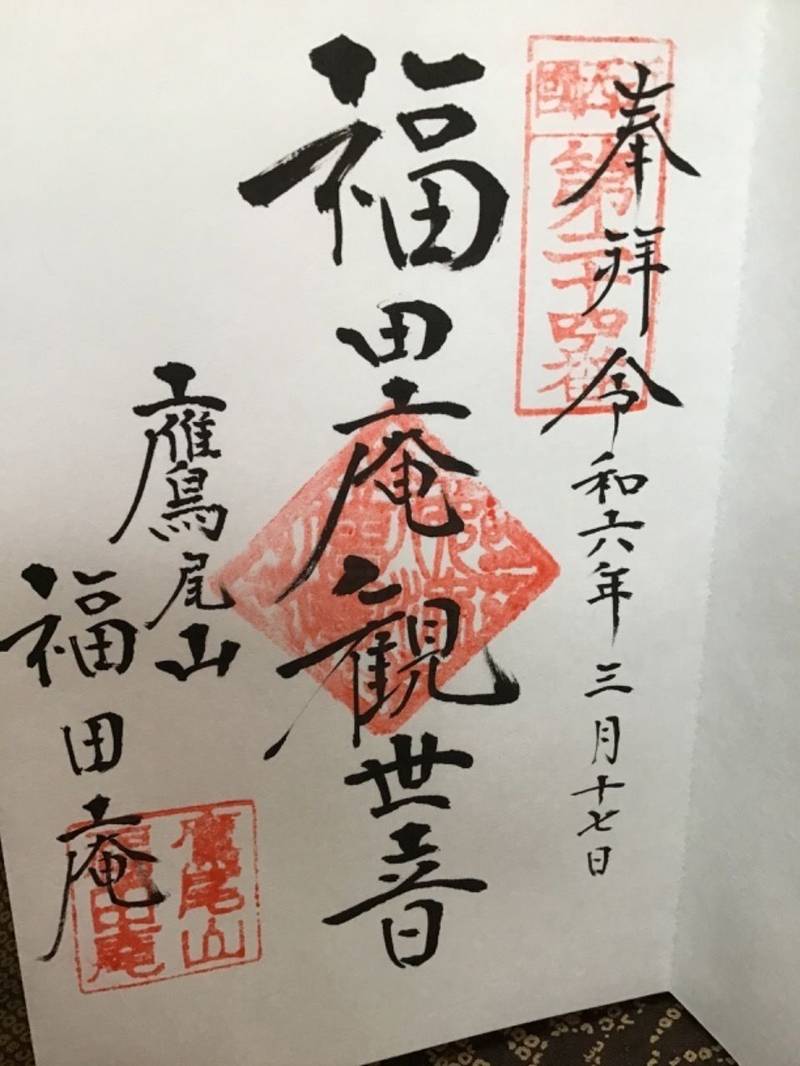 奉拝 令和六年三月十七日
第二十四番
福田庵観世音
鷹尾山
福田庵
鷹尾山
福田庵